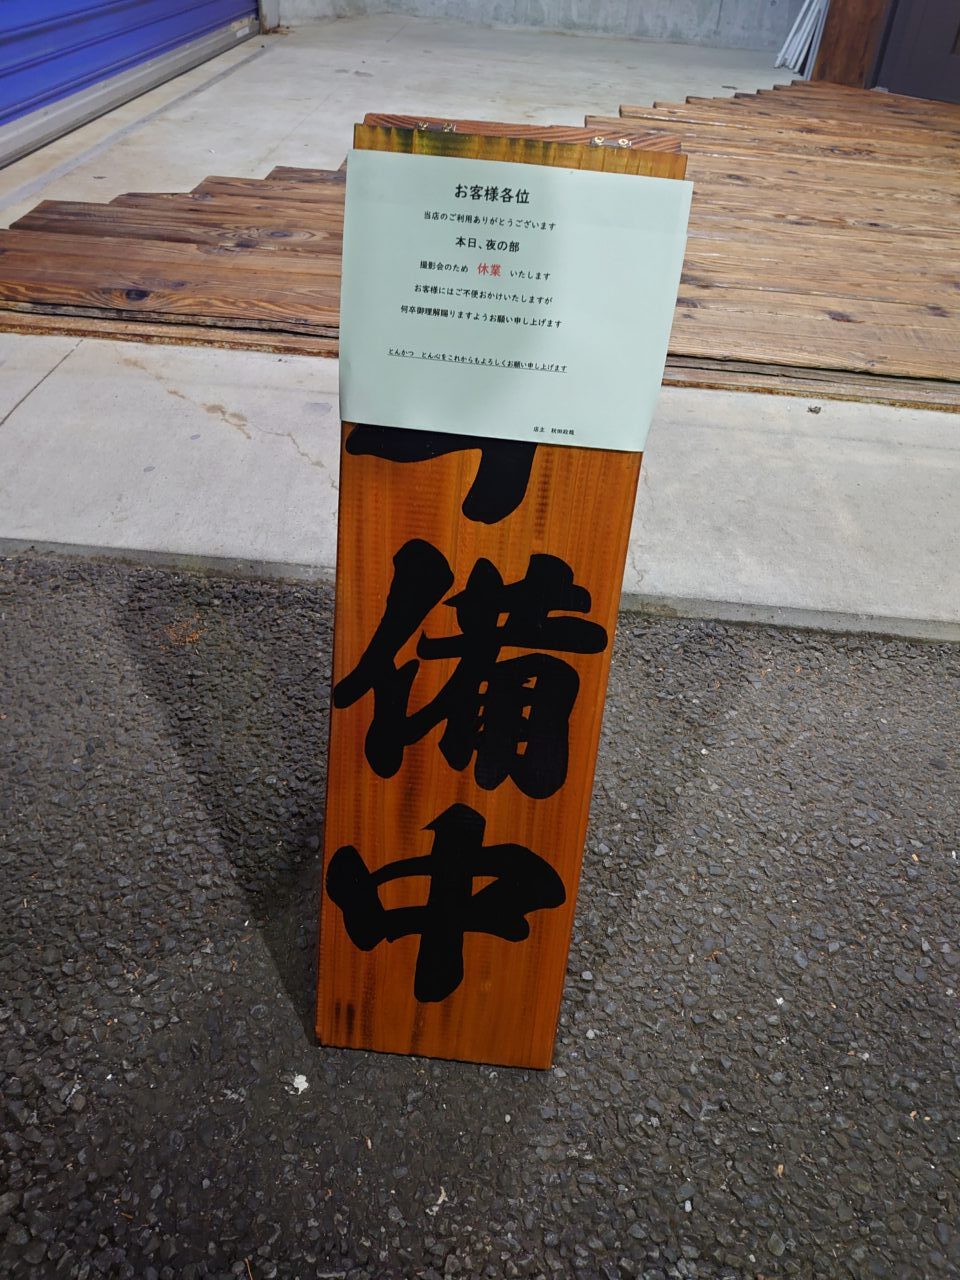 お客様各位
当店のご利用ありがとうございます
本日、夜の部
撮影会のため 休業 いたします
お客様にはご不便おかけいたしますが
何卒御理解賜りますようお願い申し上げます
とんかつ とん心をこれからもよろしくお願い申し上げます
店主
備
中